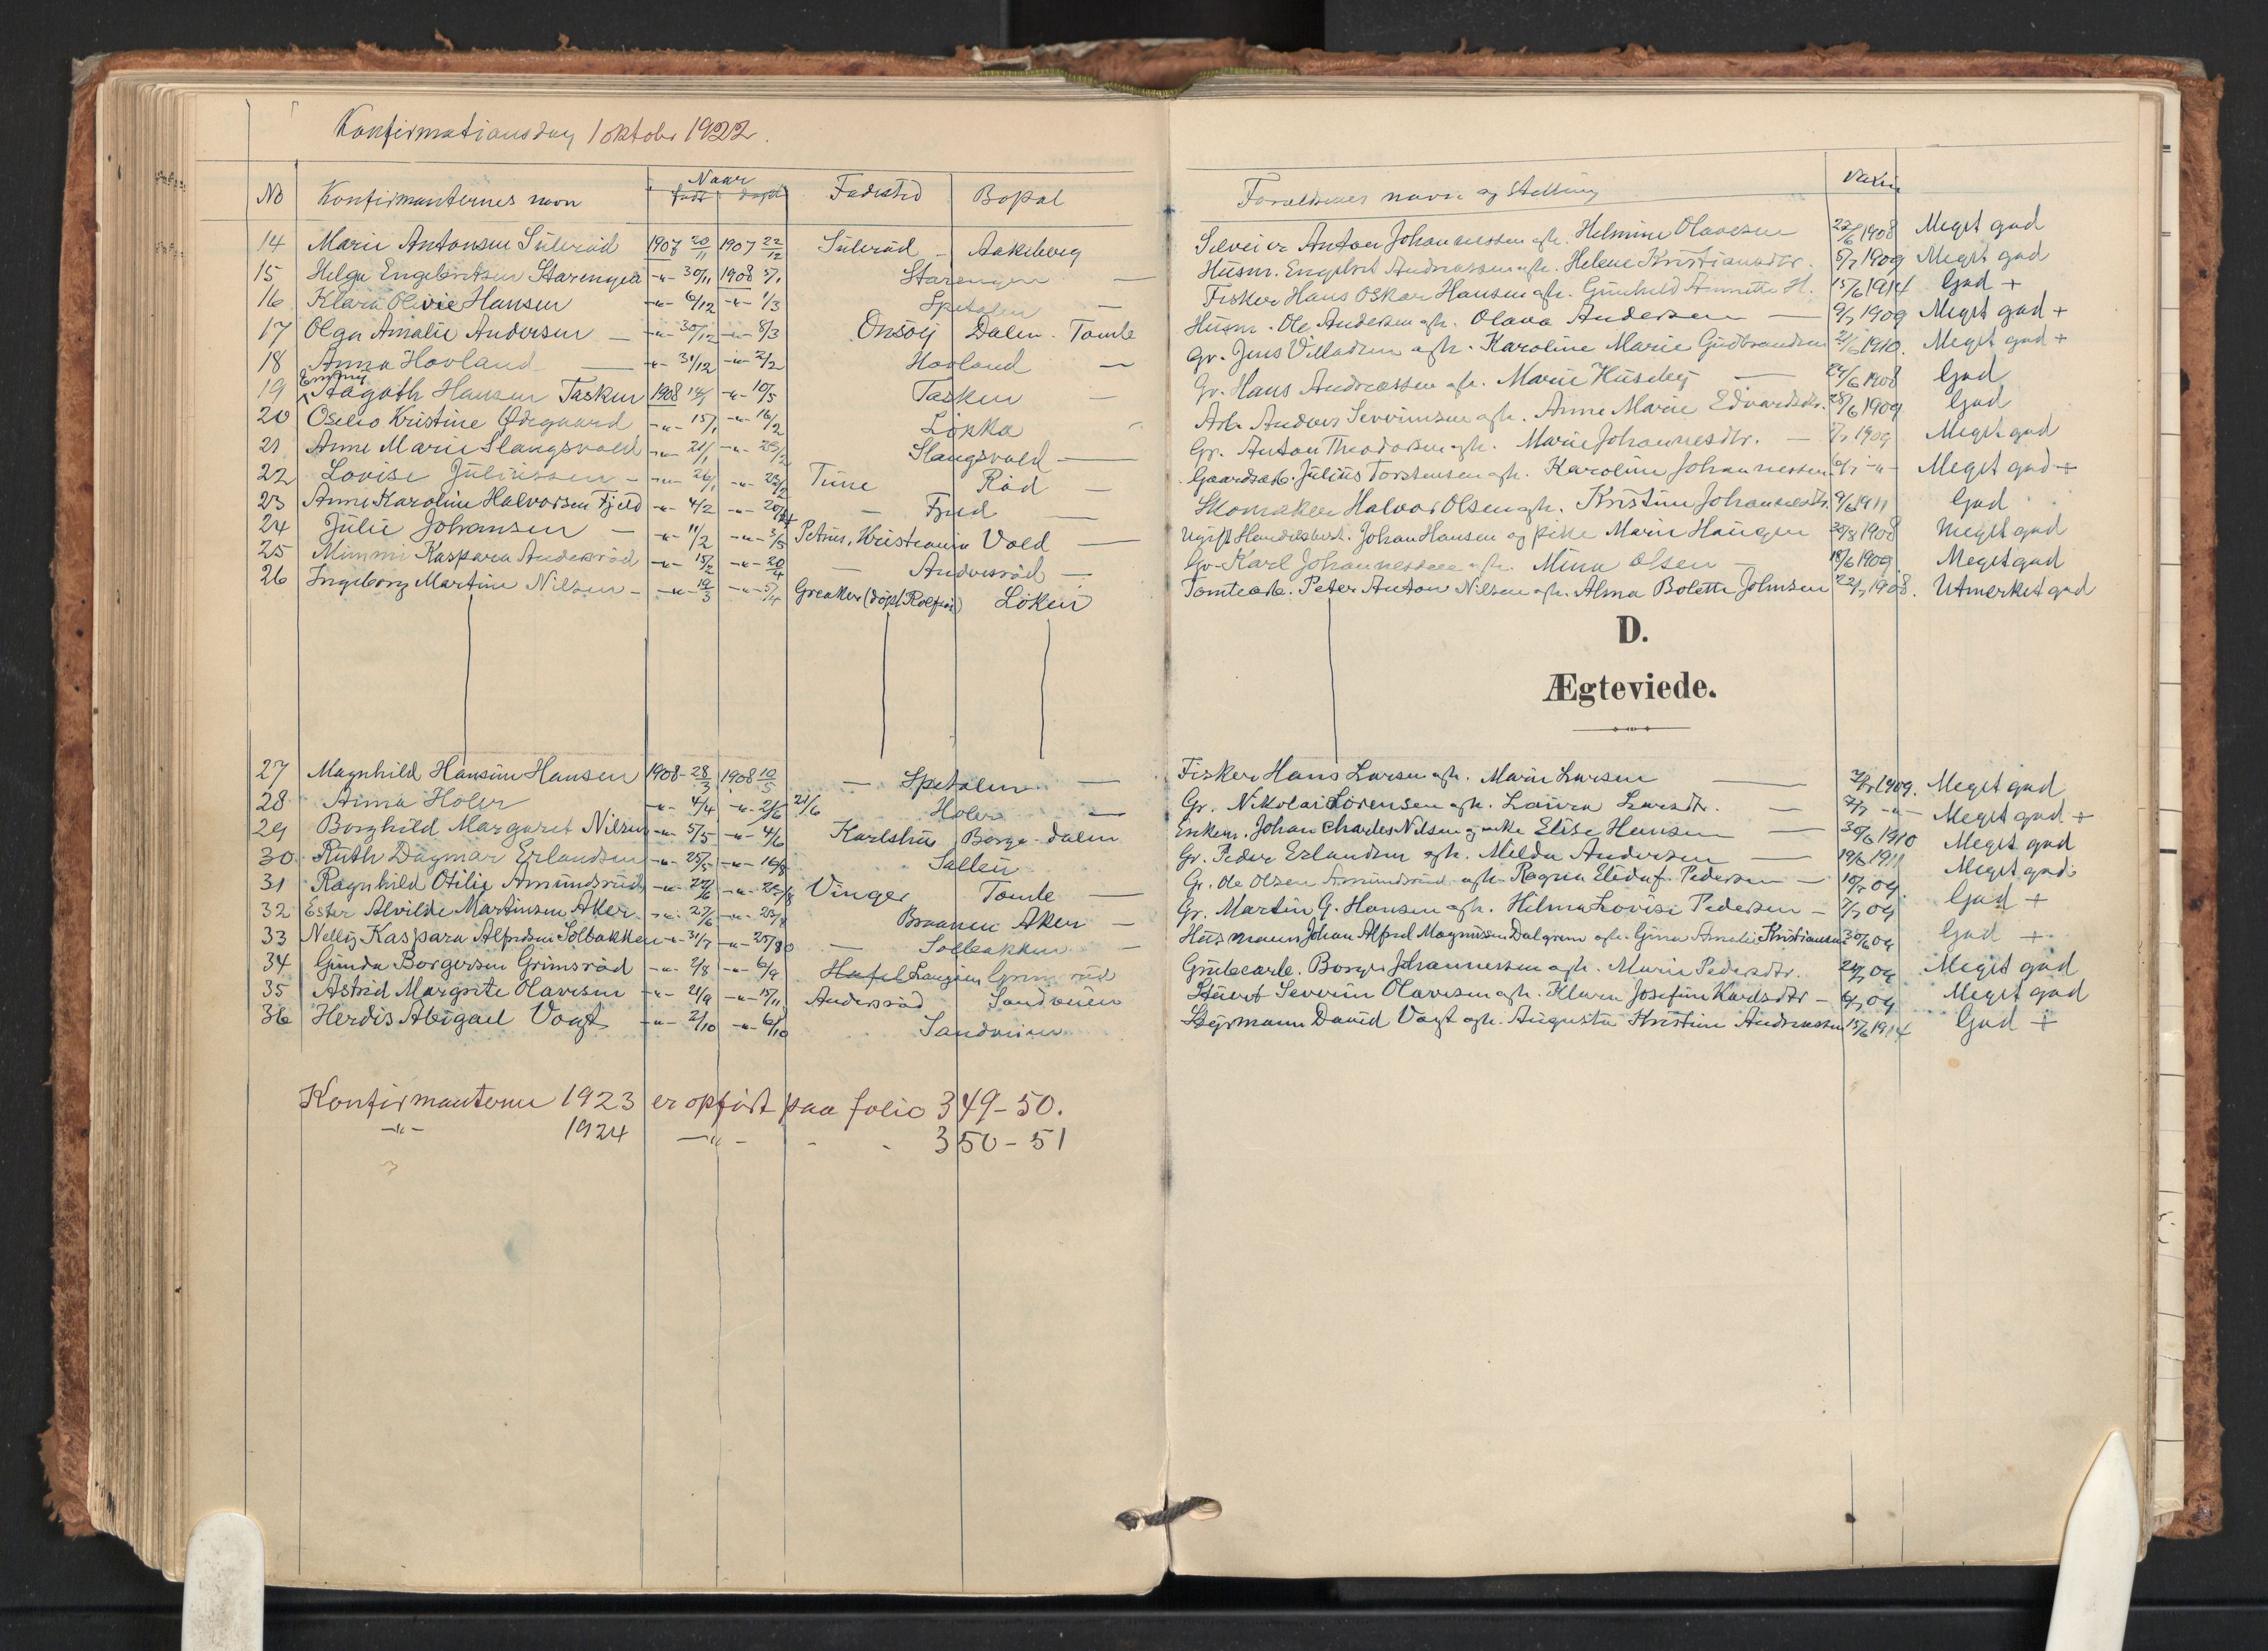 Konfirmationsdag 1 oktober 1922.
No Konfirmanternes navn Naar født døpt Fødested Bopæl Forældrenes navn og stilling Vaxin
14 Marie Antonsen Sülerød 1907 20/11 1907 22/12 Sülerød - Askeberg Anton Johannessen oh. Helmine Olavesen 22/6 1908 Meget god
15 Helga Engebretsen Starengen -"- 30/11 1908 5/1 Starengen — Husm. Engebret Andreassen oh. Helene Kristiansdtr. 5/7 1909 Meget god
16 Klara Olivie Hansen -"- 6/12 -"- 1/3 Spetalen — Fisker Hans Oskar Hansen oh. Gunhild Annette H. 15/6 1914 God +
17 Olga Amalie Andersen — -"- 30/12 -"- 8/3 Onsøy Dalen. Tomle Husm. Ole Andersen oh. Olava Andersen — 9/7 1909 Meget god +
18 Anna Hovland — -"- 31/12 -"- 2/2 Hovland — Gr. Jens Villadsen oh. Karoline Marie Gudbrandsen 21/6 1910. Meget god +
19 Emmy Aagoth Hansen Tasken 1908 14/1 -"- 10/5 Tasken — Gr. Hans Andreassen oh. Marie Huseby — 24/6 1908 God
20 Kristine Ødegaard -"- 15/1 -"- 16/2 Løkka Arb. Anders Severinsen oh. Anne Marie Edvardsdtr. 28/6 1909 God
21 Anne Marie Slangsvold -"- 21/1 -"- Slangsvold — Gr. Anton Theodorsen oh. Marie Johannesdtr. — 7/7 1909 Meget god
22 Lovise Juliussen - -"- 26/1 -"- 23/2 Tune Rød — Gaardsarb. Julius Torstensen oh. Karoline Johannessen 6/7 -"- Meget god +
23 Anne Karoline Halvorsen Fjeld -"- 4/2 -"- — Fjeld — Skomaker Halvor Olsen oh. Kristine Johannesdtr. 9/6 1911 God
24 Julie Johansen — -"- 11/2 -"- 3/5 Petrus, Kristiania Vold — Ugift Handelsbest. Johan Hansen og pike Marie Haugen 30/8 1908 Meget god
25 Mimmi Kaspara Andersrød -"- 15/2 -"- 20/4 — Andersrød — Gr. Karl Johannessen oh. Mina Olsen — 18/6 1909 Meget god
26 Ingeborg Martine Nilsen - -"- 19/3 -"- 5/4 Greaker (døpt Rolfsøi) Løken Tomtearb. Peter Anton Nilsen oh. Alma Bolette Johnsen 22/7 1908. Utmerket god
D.
Ægteviede.
27 Magnhild Hansine Hansen 1908 - 28/3 1908 10/5 — Spetalen — Fisker Hans Larsen oh. Marie Larsen — 7/7 1909. Meget god
28 Anna Holer -"- 4/4 -"- 21/6 21/6 Holer — Gr. Nikolai Lorensen oh. Laura Larsdtr. — 7/7 -"- Meget god +
29 Borghild Margaret Nilsen -"- 5/5 -"- 4/6 Karlshus Borge-dalen Enkem. Johan Charles Nilsen Elise Hansen — 30/6 1910 Meget god
30 Ruth Dagmar Erlandsen -"- 25/5 -"- 16/8 Sølten Gr. Peder Erlandsen oh. Milda Andersen — 19/6 1911 Meget god
31 Ragnhild Otilie Amundsrud -"- -"- Vinger Tomle — Gr. Ole Olsen Amundsrud oh. Pedersen — 10/7 09. God +
32 Ester Alvilde Martinsen Aker -"- 27/6 -"- Braanen Aker — Gr. Martin G. Hansen oh. Hilma Lovise Pedersen — 7/7 09 God +
33 Nelly Kaspara Alfredsen Solbakken -"- 31/7 -"- — Solbakken — Husmann Johan Alfred Magnussen Dalgren oh. Gina Amalie Kristiansen 30/6 09 God +
34 Gunda Borgersen Grimsrød -"- 2/8 -"- 6/9 Grimsrød Grubearb. Borger Johannessen oh. Marie Pedersdtr. 09 Meget god
35 Astrid Margrete Olavesen -"- 21/9 -"- 15/11 Andersrød Sandveien Stuert Severin Olavesen oh. Klara Josefine Karlsdtr — 9/7 09 Meget god
36 Herdis Abigael Vogt -"- 2/10 -"- 6/10 Sandveien Styrmann David Vogt oh. Augusta Kristine Andreassen 15/6 1914 God +
Konfirmanterne 1923 er opført paa folio 349-50.
-"- 1924 -"- - - 350-51